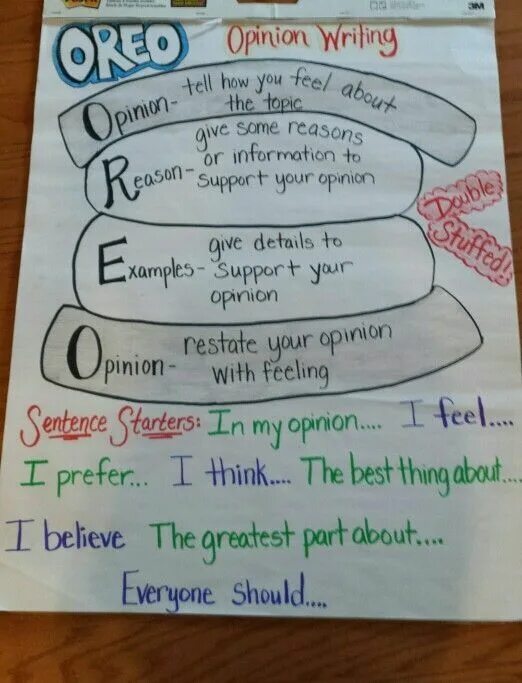 3M
OREO Opinion Writing
Opinion- tell how you feel about
the topic
give some reasons
or information to
Reason- support your opinion
Double
Stuffed!
give details to
Examples- support your
opinion
restate your opinion
Opinion- with feeling
Sentence Starters: In my opinion.... I feel....
I prefer... I think.... The best thing about....
I believe The greatest part about....
Everyone should....